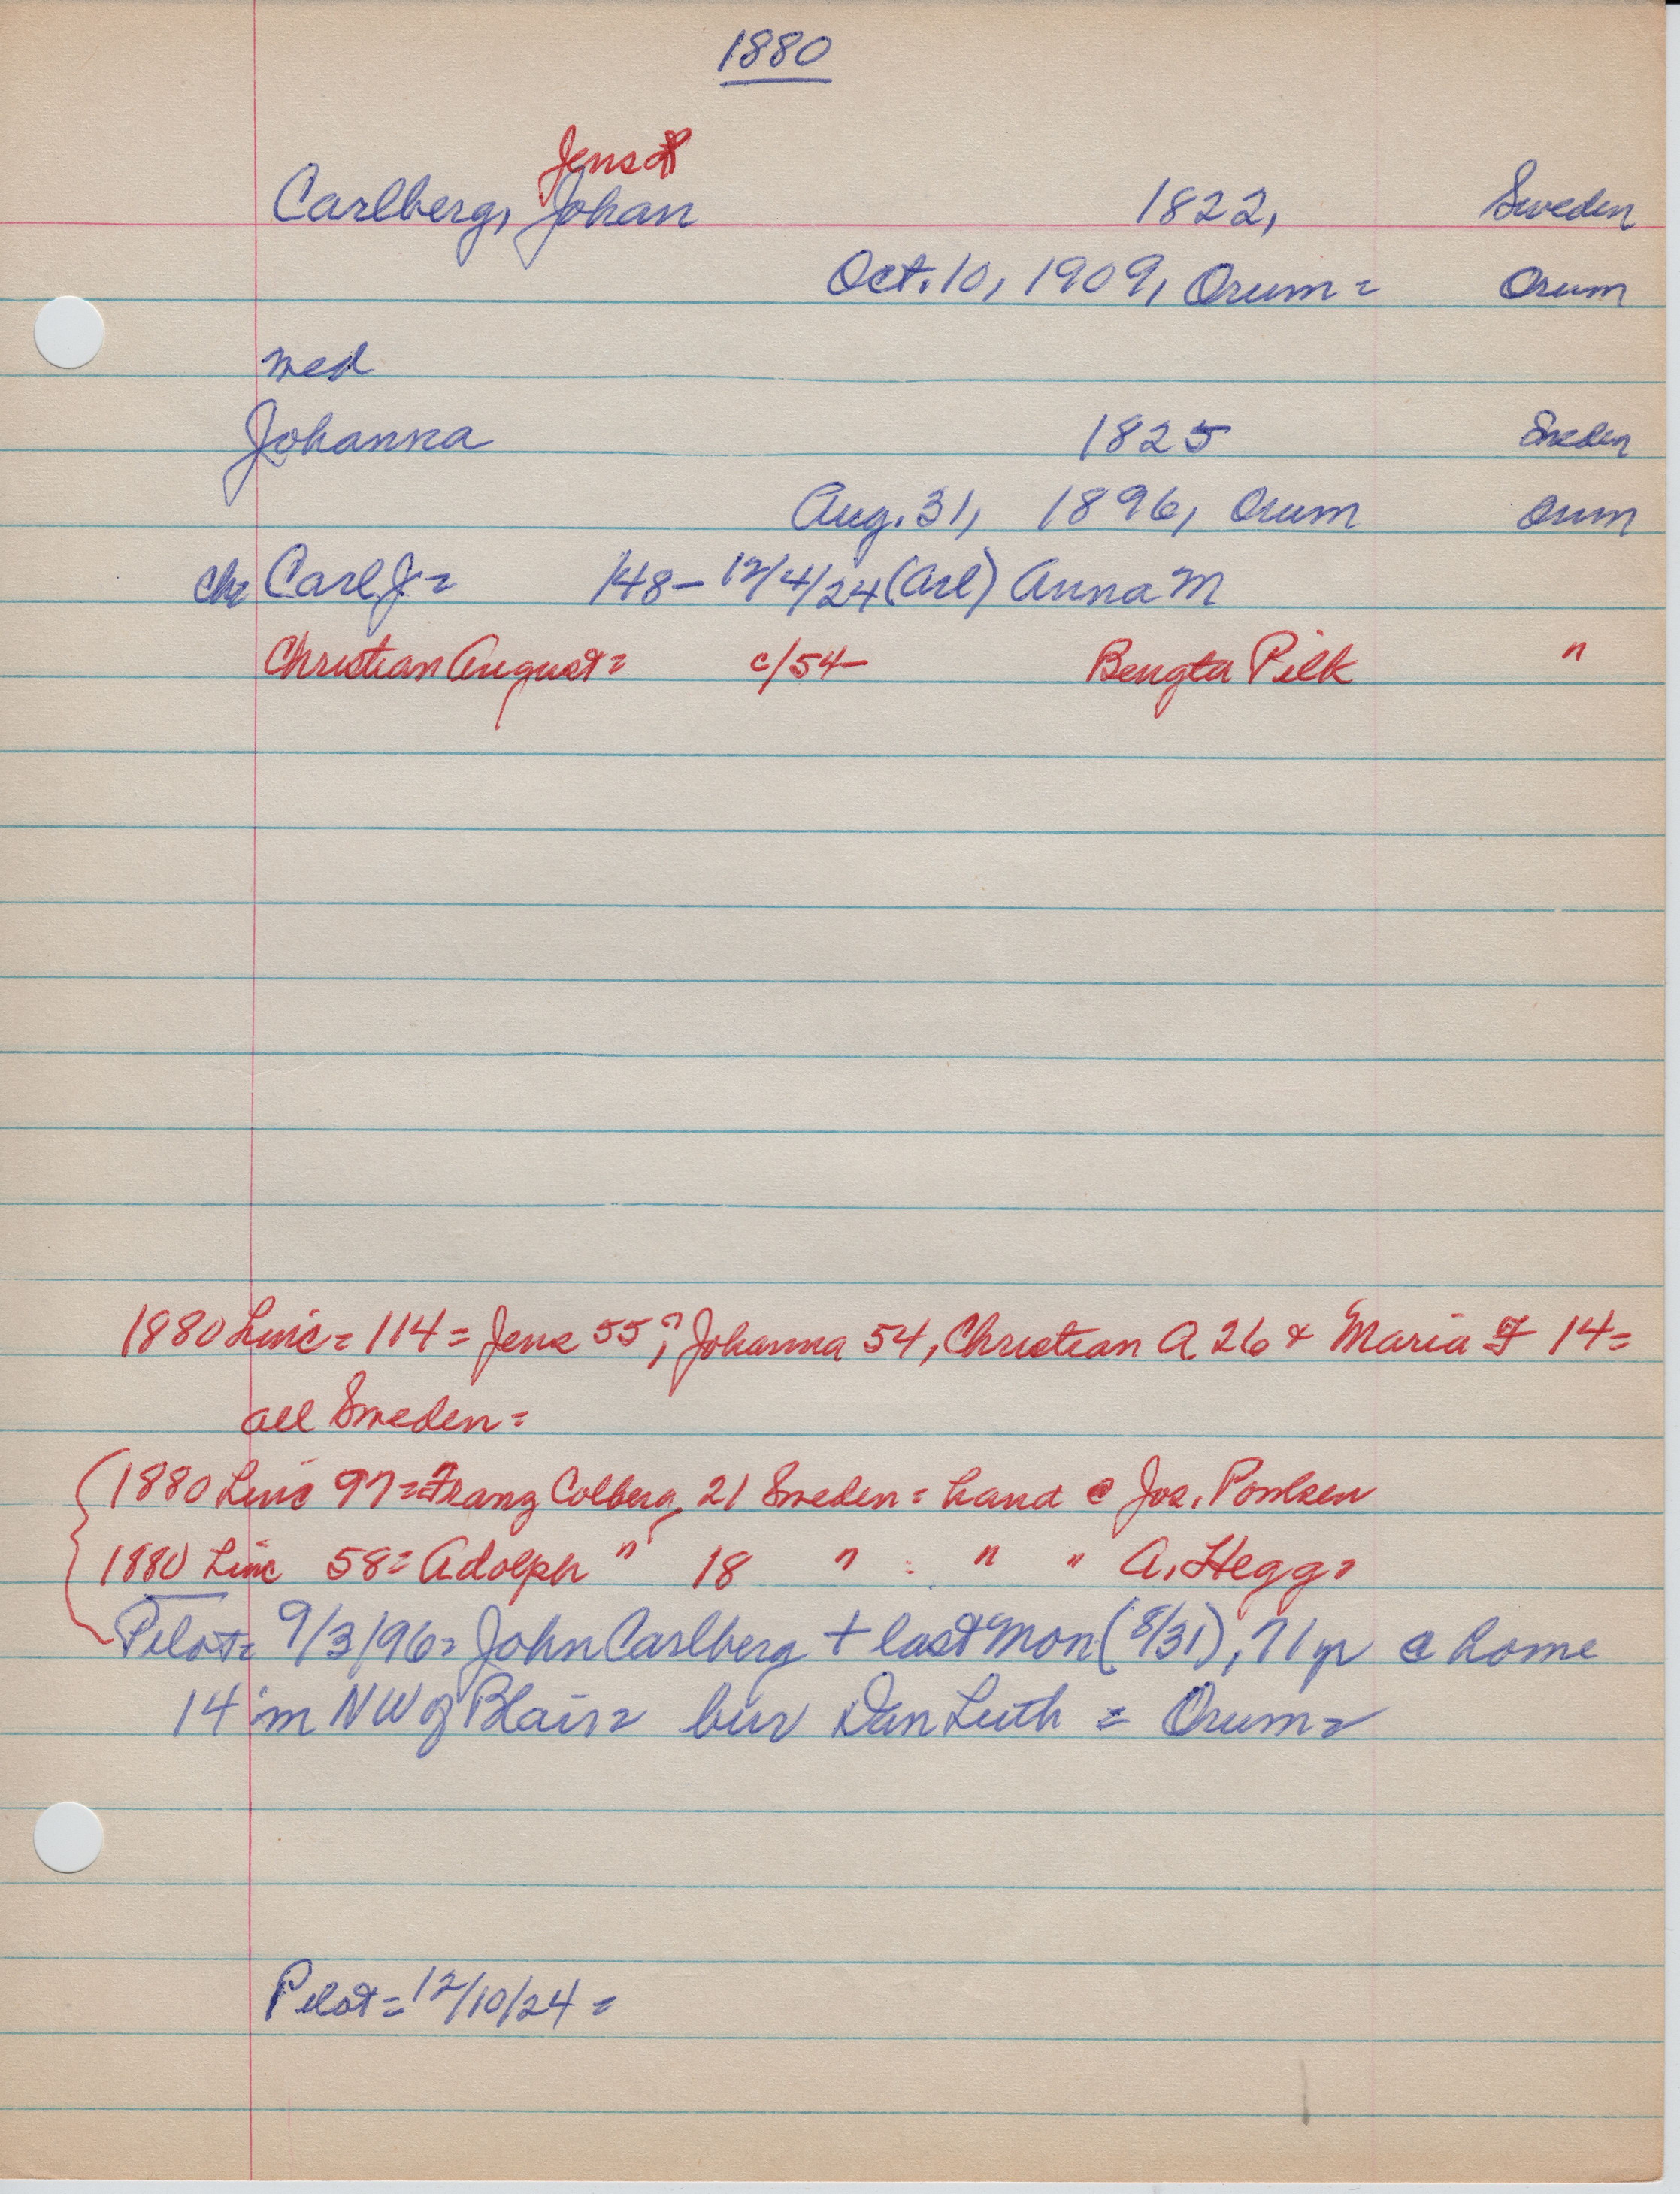 1880
Jens
Carlberg, Johan 1822, Sweden
Oct. 10, 1909, Orum = Orum
med
Johanna 1825 Sweden
Aug. 31, 1896, Orum Orum
ch= Carl J = 148- 12/4/24 (Arl) Anna M
Christian August = c/54- Bengta Pilk "
1880 Linc = 114 = Jens 55?; Johanna 54, Christian A 26 & Maria F 14 =
all Sweden =
1880 Linc 97 = Franz Colberg, 21 Sweden = hand @ Jos. Poulsen
1880 Linc 58 = Adolph " 18 " = " " A. Hegg =
Pilot = 9/3/96 = John Carlberg + last Mon (8/31), 71 yr @ home
14 m NW of Blair = bur Dan Luth = Orum =
Pilot = 12/10/24 =